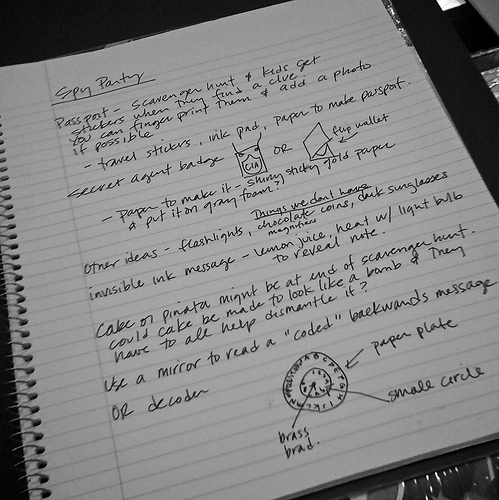 Spy Party
Passport - Scavenger hunt & kids get
stickers when they find a clue.
You can finger print them & add a photo
if possible.
- travel stickers, ink pad, paper to make passport.
Secret agent badge
CIA
OR
flip wallet
- Paper to make it - shiny sticky gold paper
& put it on gray foam?
Things we don't have
Other ideas - flashlights, chocolate coins, dark sunglasses
magnifiers
invisible ink message - lemon juice, heat w/ light bulb
to reveal note.
Cake or pinata might be at end of scavenger hunt.
Could cake be made to look like a bomb & they
have to all help dismantle it?
Use a mirror to read a "coded" backwards message
OR decoder
paper plate
small circle
brass
brad.